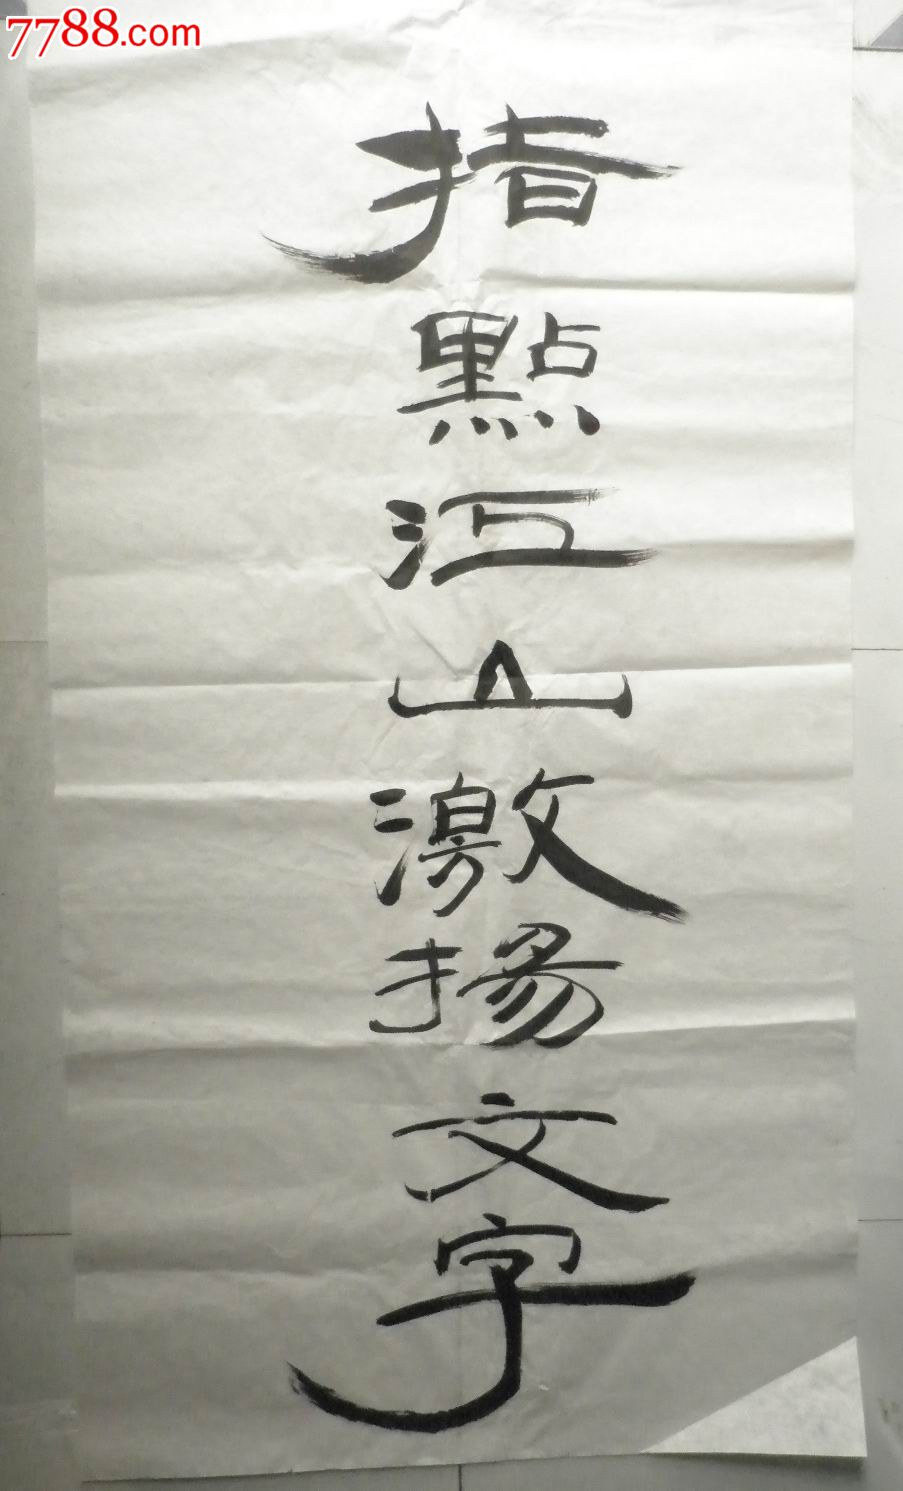 7788.com
指點江山激揚文字